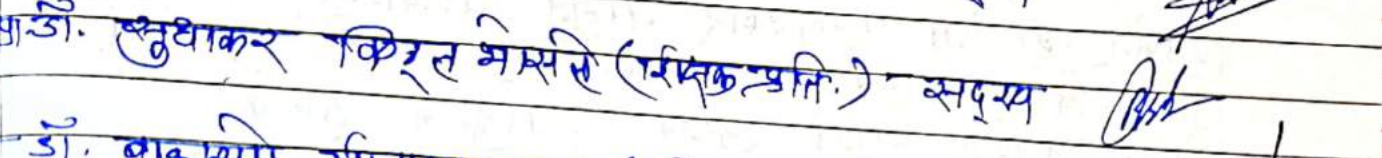 प्रा.डॉ. सुधाकर विठ्ठल भोसले (शिक्षक प्रति.) सदस्य
डॉ.